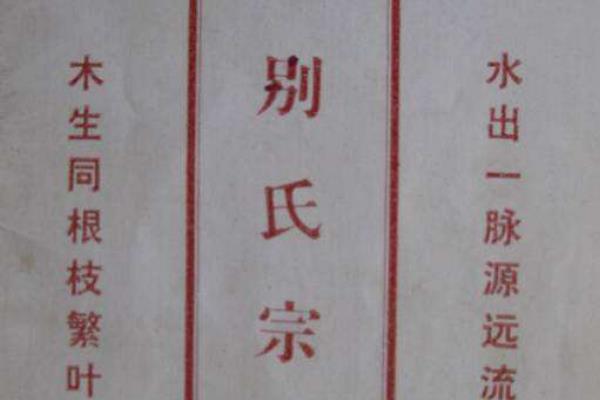 水出一脉源远流
别氏宗
木生同根枝繁叶